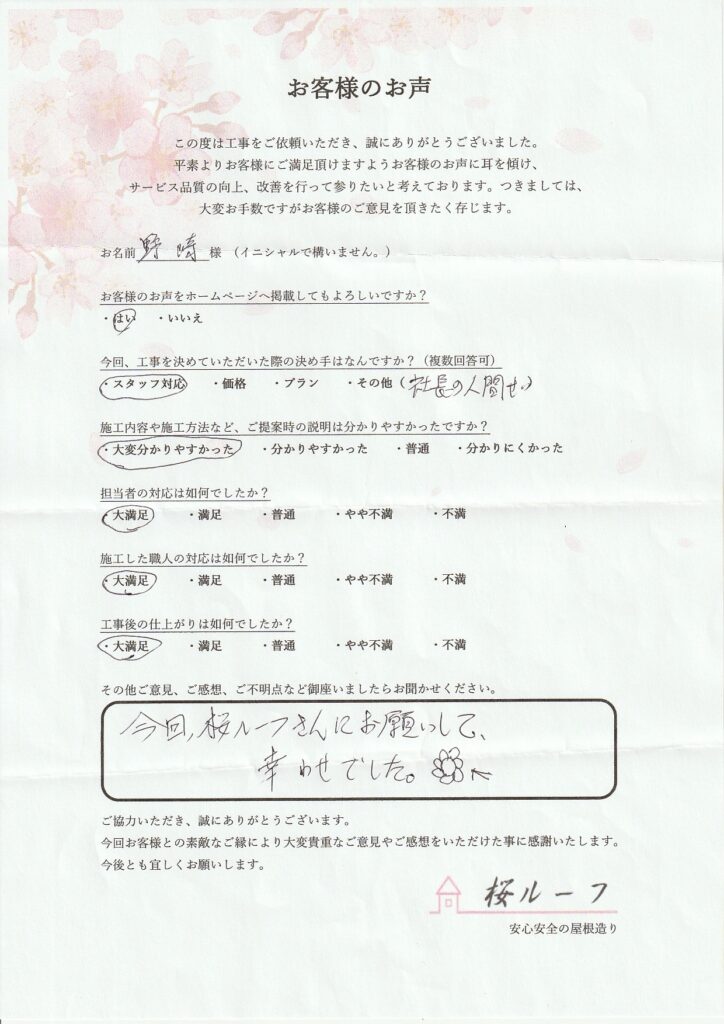 お客様のお声
この度は工事をご依頼いただき、誠にありがとうございました。
平素よりお客様にご満足頂けますようお客様のお声に耳を傾け、
サービス品質の向上、改善を行って参りたいと考えております。つきましては、
大変お手数ですがお客様のご意見を頂きたく存じます。
お名前 野崎 様 （イニシャルで構いません。）
お客様のお声をホームページへ掲載してもよろしいですか？
・はい ・いいえ
今回、工事を決めていただいた際の決め手はなんですか？（複数回答可）
・スタッフ対応 ・価格 ・プラン ・その他（社長の人間性）
施工内容や施工方法など、ご提案時の説明は分かりやすかったですか？
・大変分かりやすかった ・分かりやすかった ・普通 ・分かりにくかった
担当者の対応は如何でしたか？
・大満足 ・満足 ・普通 ・やや不満 ・不満
施工した職人の対応は如何でしたか？
・大満足 ・満足 ・普通 ・やや不満 ・不満
工事後の仕上がりは如何でしたか？
・大満足 ・満足 ・普通 ・やや不満 ・不満
その他ご意見、ご感想、ご不明点など御座いましたらお聞かせください。
今回、桜ルーフさんにお願いして、
幸わせでした。
ご協力いただき、誠にありがとうございます。
今回お客様との素敵なご縁により大変貴重なご意見やご感想をいただけた事に感謝いたします。
今後とも宜しくお願いします。
桜ルーフ
安心安全の屋根造り